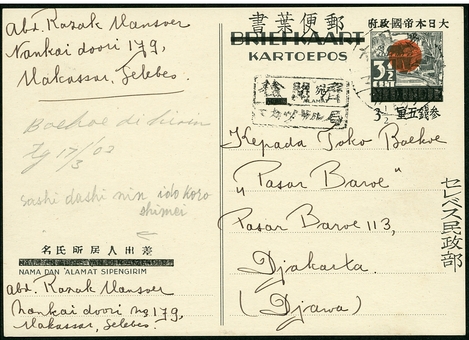 Abd. Razak Mansoer
Nankai doori 179,
Makassar, Selebes.
Boekoe di kirim
Tg 17/3 '03
sashi dashi nin idokoro
shimei
差出人居所氏名
NAMA DAN 'ALAMAT SIPENGIRIM
Abd. Razak Mansoer
Nankai doori no 179,
Makassar, Selebes.
郵便葉書
BRIEFKAART
KARTOEPOS
大日本帝國政府
3½
CENT
参銭五厘
3½
Kepada Toko Boekoe
"Pasar Baroe"
Pasar Baroe 113,
Djakarta
(Djawa)
セレベス民政部